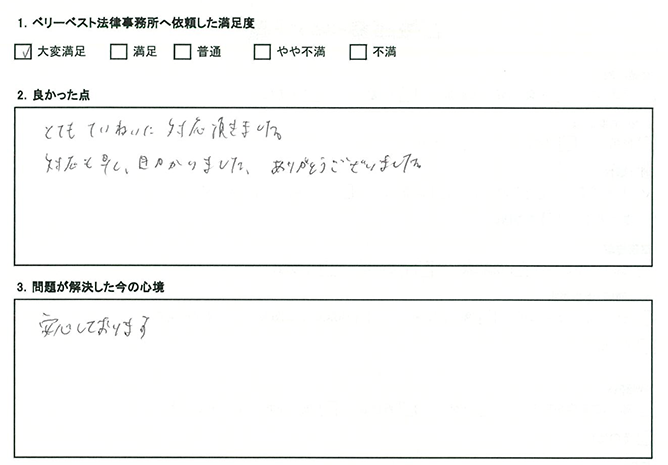 1. ベリーベスト法律事務所へ依頼した満足度
☑ 大変満足 □ 満足 □ 普通 □ やや不満 □ 不満
2. 良かった点
とても ていねいに 対応頂きました。
対応も早く、助かりました、ありがとうございました。
3. 問題が解決した今の心境
安心しております